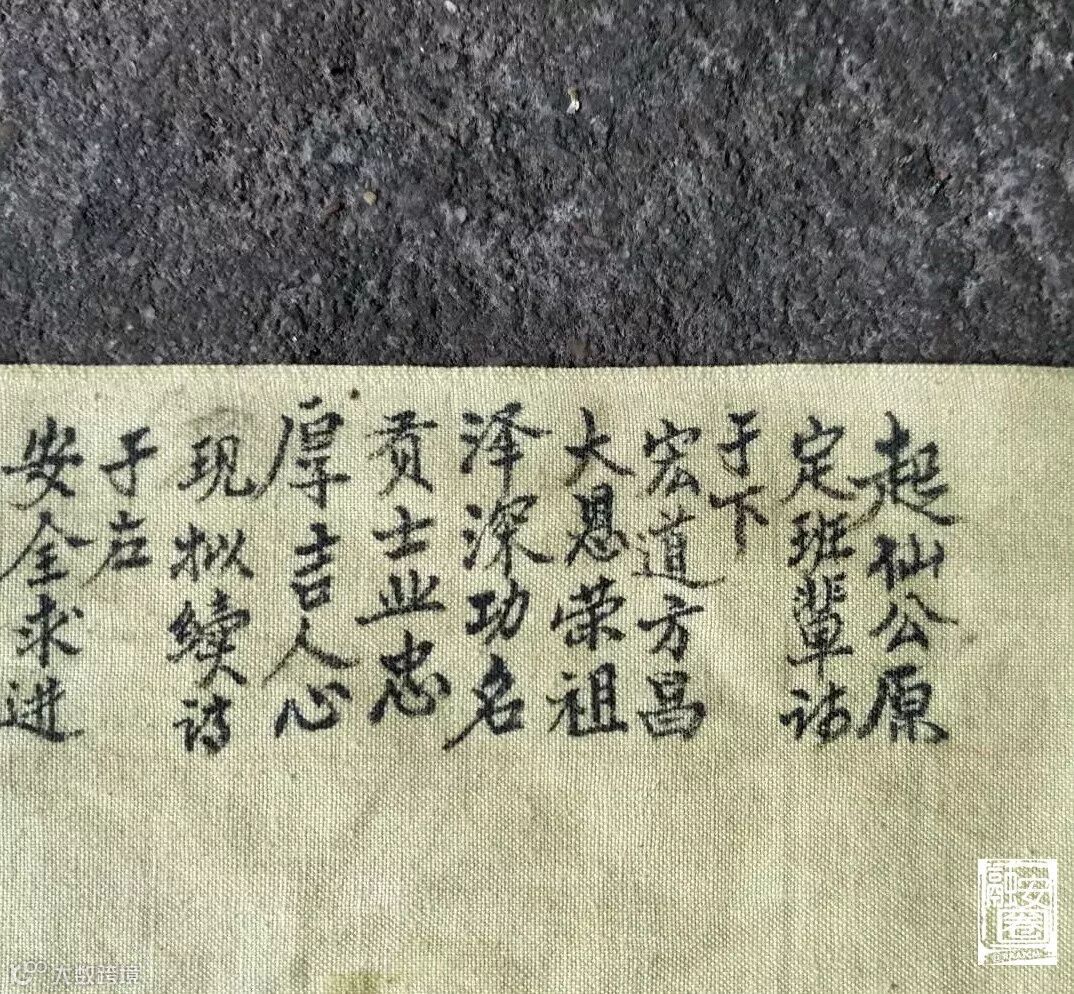 起仙公原
定班辈诗
于下
宏道方昌
大恩荣祖
泽深功名
贡士业忠
厚吉人心
现拟续诗
于左
安全求进
融安圈
大数跨境